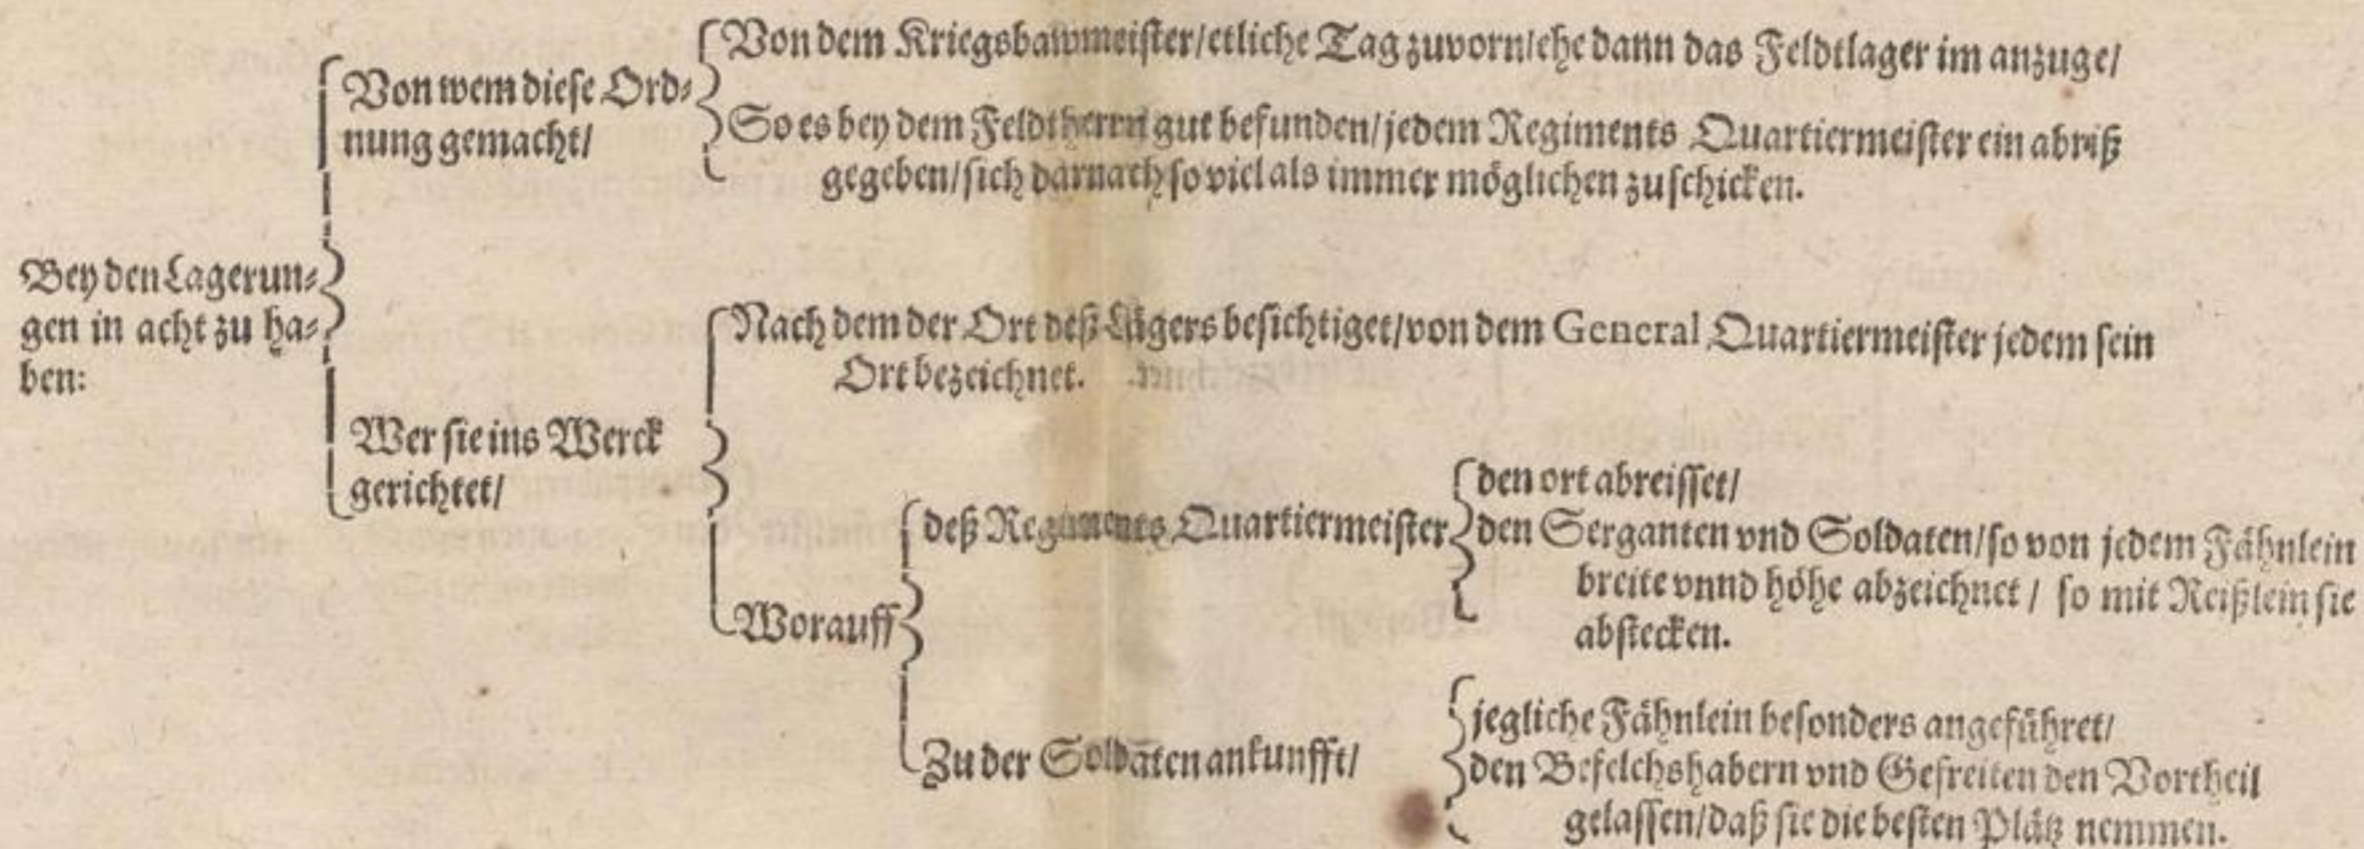 Bey den Lagerun⸗
gen in acht zu ha⸗
ben:
Von wem diese Ord⸗
nung gemacht/
Von dem Kriegsbawmeister/etliche Tag zuvorn/ehe dann das Feldtlager im anzuge/
So es bey dem Feldtherrn gut befunden/jedem Regiments Quartiermeister ein abriß
gegeben/sich darnach so viel als immer möglichen zu schicken.
Wer sie ins Werck
gerichtet/
Nach dem der Ort deß Lägers besichtiget/von dem General Quartiermeister jedem sein
Ort bezeichnet.
Worauff
deß Regiments Quartiermeister
den ort abreisset/
den Serganten vnd Soldaten/so von jedem Fähnlein
breite vnnd höhe abzeichnet / so mit Reißlein sie
abstecken.
Zu der Soldaten ankunfft/
jegliche Fähnlein besonders angeführet/
den Befelchshabern vnd Gefreiten den Vortheil
gelassen/daß sie die besten Plätz nemmen.